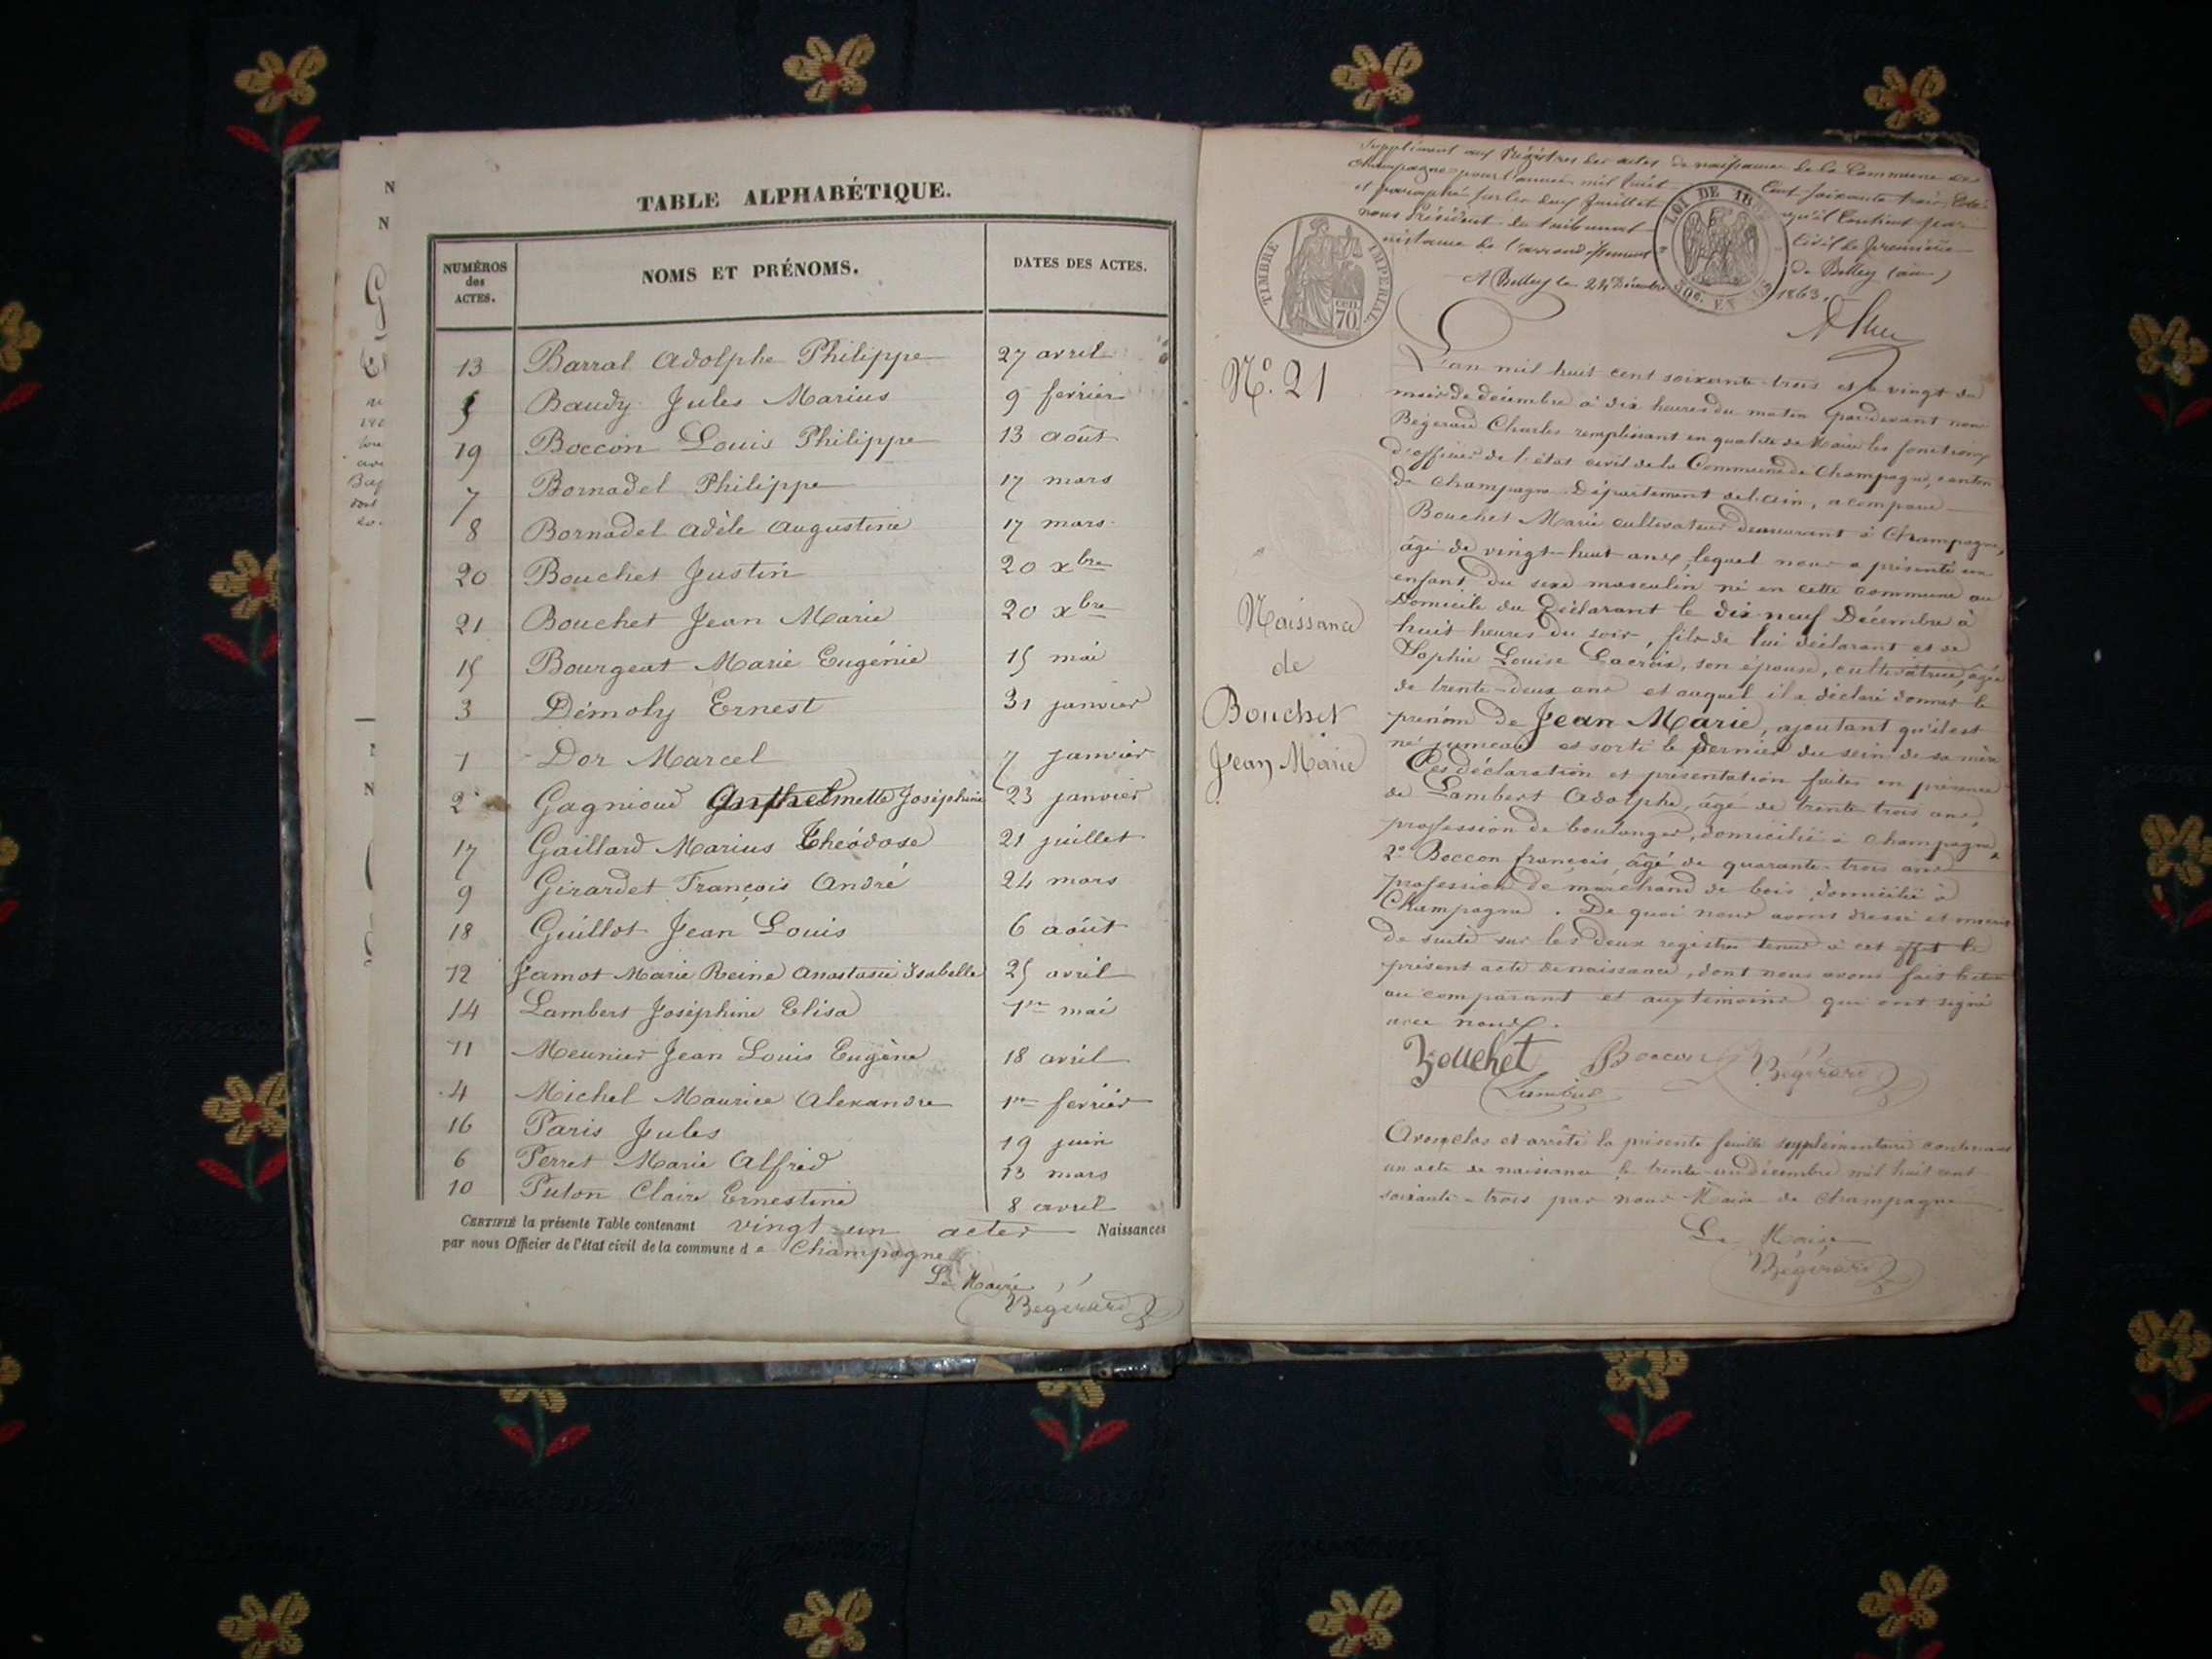 TABLE ALPHABÉTIQUE.
NUMÉROS des ACTES. NOMS ET PRÉNOMS. DATES DES ACTES.
13 Barral Adolphe Philippe 27 avril
5 Baudy Jules Marius 9 février
19 Boccon Louis Philippe 13 août
7 Bornadel Philippe 17 mars
8 Bornadel Adèle Augustine 17 mars
20 Bouchet Justin 20 xbre
21 Bouchet Jean Marie 20 xbre
15 Bourgeat Marie Eugénie 15 mai
3 Démoly Ernest 31 janvier
1 Dor Marcel 7 janvier
2 Gagnioud Anthelmette Joséphine 23 janvier
17 Gaillard Marius Théodose 21 juillet
9 Girardet François André 24 mars
18 Guillot Jean Louis 6 août
12 Jamot Marie Reine Anastasie Isabelle 25 avril
14 Lambert Joséphine Elisa 1er mai
11 Meunier Jean Louis Eugène 18 avril
4 Michel Maurice Alexandre 1er février
16 Paris Jules 19 juin
6 Perret Marie Alfred 13 mars
10 Puton Claire Ernestine 8 avril
CERTIFIÉ la présente Table contenant vingt-un actes Naissances
par nous Officier de l'état civil de la commune de Champagne
Le Maire
Bégérard
Supplément aux Régistres des actes de naissance de la Commune de
Champagne pour l'année mil huit Cent soixante trois, Coté
et paraphé sur les deux feuillets qu'il contient par
nous Président du tribunal Civil de première
instance de l'arrondissement de Belley (ain)
A Belley le 24 Décembre 1863.
TIMBRE IMPÉRIAL
CEN. 70
LOI DE 18
50c. EN
N.o 21
L'an mil huit cent soixante trois et le vingt du
mois de décembre à dix heures du matin pardevant nous
Bégérard Charles remplissant en qualité de Maire les fonctions
d'officier de l'état civil de la Commune de Champagne, canton
de Champagne Département de l'ain, a comparu
Bouchet Marie cultivateur demeurant à Champagne,
âgé de vingt-huit ans, lequel nous a présenté un
enfant du sexe masculin né en cette commune au
Domicile du Déclarant le dix-neuf Décembre à
huit heures du soir, fils de lui déclarant et de
Sophie Louise Lacroix, son épouse, cultivatrice, âgée
de trente-deux ans et auquel il a déclaré donner le
prénom de Jean Marie, ajoutant qu'il est
né jumeau et sorti le dernier du sein de sa mère
Naissance
de
Bouchet
Jean Marie
Ces déclaration et présentation faites en présence
de Lambert Adolphe, âgé de trente-trois ans,
profession de boulanger, domicilié à Champagne
2o Boccon françois, âgé de quarante-trois ans
profession de marchand de bois, domicilié à
Champagne. De quoi nous avons dressé et
de suite sur les deux registres tenus à cet effet le
présent acte de naissance, dont nous avons fait lecture
au comparant et aux témoins qui ont signé
avec nous.
Bouchet Boccon Bégérard
Lambert
Avons clos et arrêté la présente feuille supplémentaire contenant
un acte de naissance le trente-un décembre mil huit cent
soixante-trois par nous Maire de Champagne
Le Maire
Bégérard